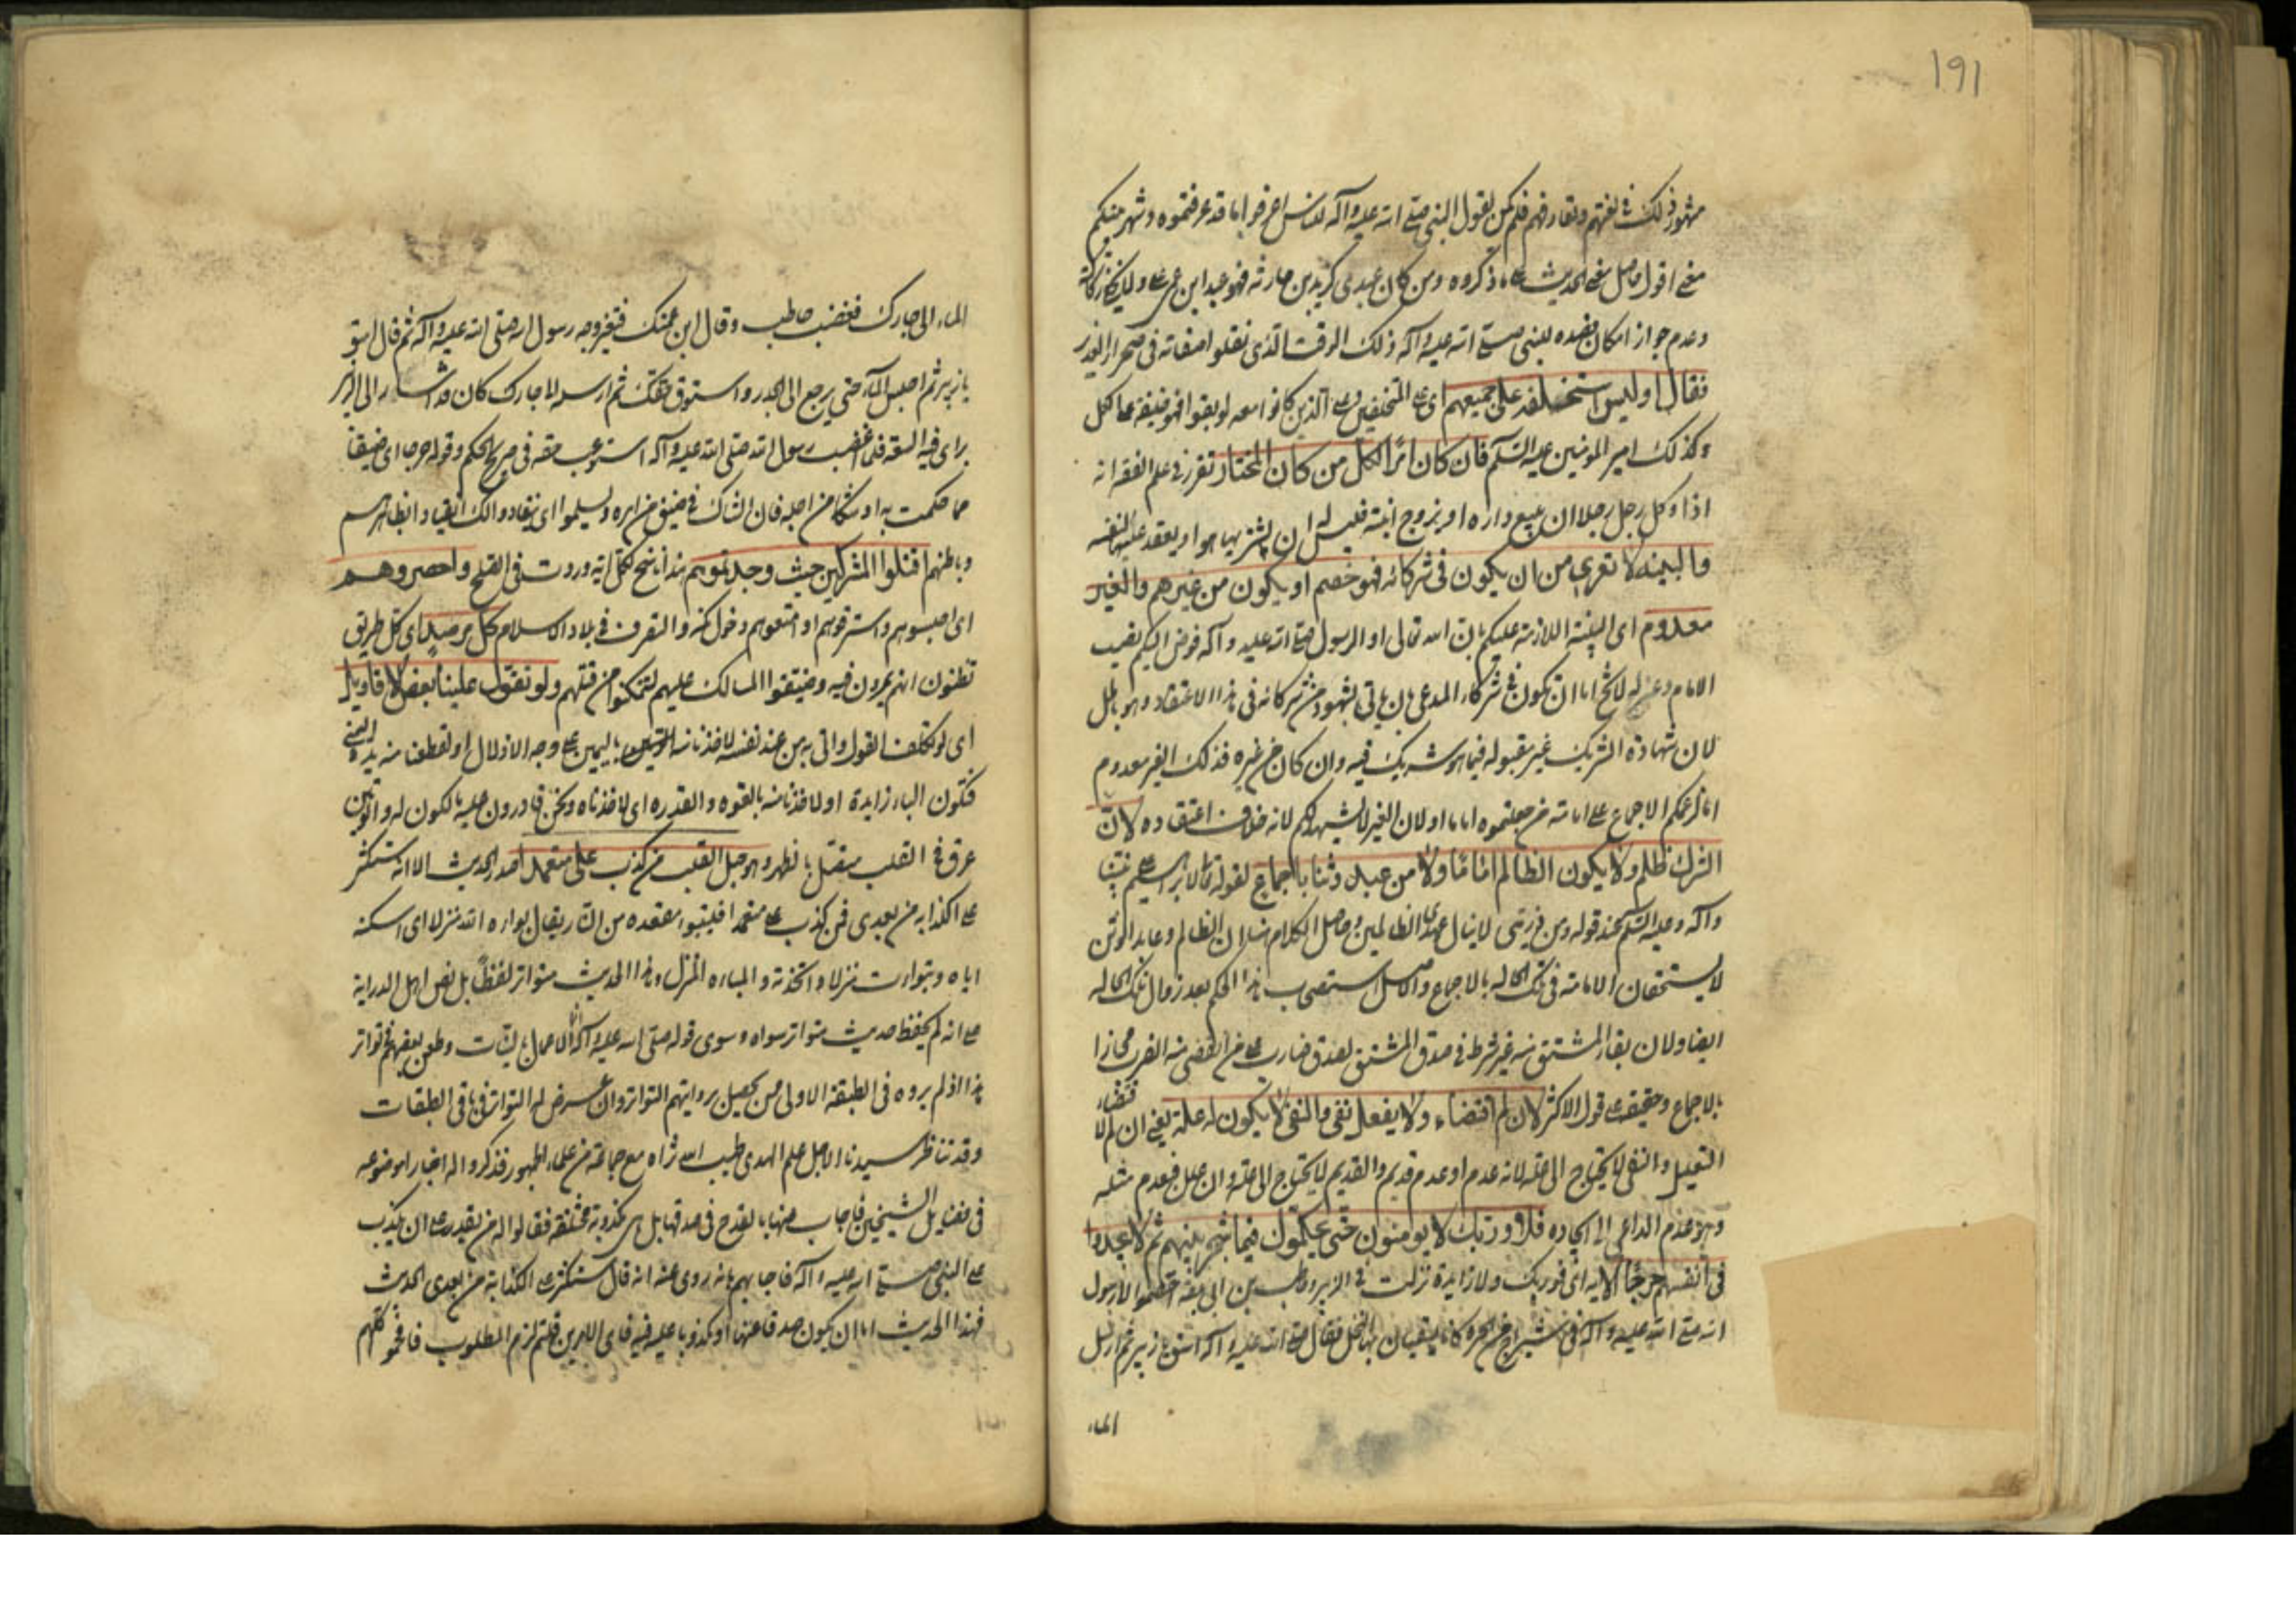 ١٩١
مشهور ذلك في لغتهم وتعارفهم فلم يكن لقول النبي صلى الله عليه وآله للناس اعرفوا اما قد عرفتموه وشهر بينكم
معنى اقول حاصل معنى الحديث على ما ذكروه ومن كان عبدي كزيد بن حارثه فهو عبد ابن عمي علي
وعدم جواز امكان قصده للنبي صلى الله عليه وآله ذلك الوقت الذي نقلوا اصفاته في صحراء الغدير
فقال اوليس استخلفه على جميعهم اي على المتخلفين وعلى الذين كانوا معه لو بقوا فهو خليفة على الكل
وكذلك امير المؤمنين عليه السلم فان كان اثرا لكل من كان المختار تقرر في علم الفقه انه
اذا وكل رجل رجلا ان يبيع داره او يزوج ابنته فليس له ان يشتريها هو او يعقد عليها لنفسه
والبينه لا تعرى من ان يكون في شركائه فهو خصم او يكون من غيرهم والغير
معدوم اي البينة اللازمة عليكم بان الله تعالى او الرسول صلى الله عليه وآله فوض اليكم نصب
الامام وعزله لا يخ اما ان تكون في شركاء المدعى بان ياتي بشهود من شركائه في هذا الاعتقاد وهو باطل
لان شهادة الشريك غير مقبوله فيما هو شريك فيه وان كان من غيره فذلك الغير معدوم
اما لزعمكم الاجماع على امامته من جعلتموه اماما او لان الغير لا يشهد لكم لانه خلاف اعتقاده لان
الشرك ظلم ولا يكون الظالم اماما ولا من عبد وثنا باجماع لقوله تعالى لابراهيم على نبينا
وآله وعليه السلم عند قوله ومن ذريتي لا ينال عهدي الظالمين وحاصل الكلام هنا ان الظالم وعابد الوثن
لا يستحقان الامامة في تلك الحاله بالاجماع والاصل استصحاب هذا الحكم بعد زوال تلك الحاله
ايضا ولان بقاء المشتق منه غير شرط في صدق المشتق لصدق ضارب على من انقضى منه الضرب مجازا
بالاجماع وحقيقة على قول الاكثر لان لم اقتضاء ولا يفعل نفي والنفي لا يكون له علة يعني ان لم لا قتضاء
التعليل والنفي لا يحتاج الى علة لانه عدم او عدم قديم والقديم لا يحتاج الى علة وان علل فبعدم مثله
وهو عدم الداعي الى ايجاده فلا وربك لا يومنون حتى يحكموك فيما شجر بينهم ثم لا يجدوا
في انفسهم حرجا الايه اي فوربك ولا زايدة نزلت في الزبير وحاطب بن ابي بلتعه اختصموا لرسول
الله صلى الله عليه وآله في شراج من الحرة كانا يسقيان بها النخل فقال صلى الله عليه وآله اسق يا زبير ثم ارسل
الماء
الماء الى جارك فغضب حاطب وقال ابن عمتك فتغير وجه رسول الله صلى الله عليه وآله ثم قال اسق
يا زبير ثم احبس الماء حتى يرجع الى الجدر واستوف حقك ثم ارسله الى جارك كان قد اشار الى الزبير
براي فيه السعة فلما اغضب رسول الله صلى الله عليه وآله استوعب حقه في صريح الحكم وقوله حرجا اي ضيقا
مما حكمت به او شكا من اجله فان الشاك في ضيق من امره ويسلموا اي ينقادوا لك انقيادا بظاهرهم
وباطنهم اقتلوا المشركين حيث وجدتموهم هذا ناسخ لكل آية وردت في الصلح واحصروهم
اي احبسوهم واسترقوهم او امنعوهم دخول مكه والتصرف في بلاد الاسلام كل مرصد اي كل طريق
تظنون انهم يمرون فيه وضيقوا المسالك عليهم لتتمكنوا من قتلهم ولو تقول علينا بعض الاقاويل
اي لو تكلف القول واتى به من عند نفسه لاخذنا منه باليمين على وجه الاذلال او لقطعنا منه يده اليمنى
فتكون الباء زايدة او لاخذنا منه بالقوه والقدره اي لاخذناه ونحن قادرون عليه مالكون له والوتين
عرق في القلب متصل بالظهر وهو حبل القلب من كذب علي متعمدا صدر الحديث الا انه ستكثر
علي الكذابه من بعدي فمن كذب علي متعمدا فليتبوا مقعده من النار يقال بواره الله منزلا اي اسكنه
اياه وتبوات منزلا اي اتخذته والمباءه المنزل وهذا الحديث متواتر لفظا بل نص اهل الدراية
على انه لم يحفظ حديث متواتر سواه وسوى قوله صلى الله عليه وآله انما الاعمال بالنيات وطعن بعضهم في تواتر
هذا اذ لم يروه في الطبقة الاولى من يحصل بروايتهم التواتر وان عرض له التواتر في باقي الطبقات
وقد تناظر سيدنا الاجل علم الهدى طيب الله ثراه مع جماعة من علماء الجمهور فذكروا له اخبارا موضوعه
في فضايل الشيخين فاجاب عنها بالقدح في صدقها بل هي مكذوبة مختلقة فقالوا له من يقدر على ان يكذب
على النبي صلى الله عليه وآله فاجابهم بانه روى عنه انه قال ستكثر علي الكذابة من بعدي الحديث
فهذا الحديث اما ان يكون صدقا عنه او مكذوبا عليه فيه فاي الامرين قلتم لزم المطلوب فافحموا كلهم